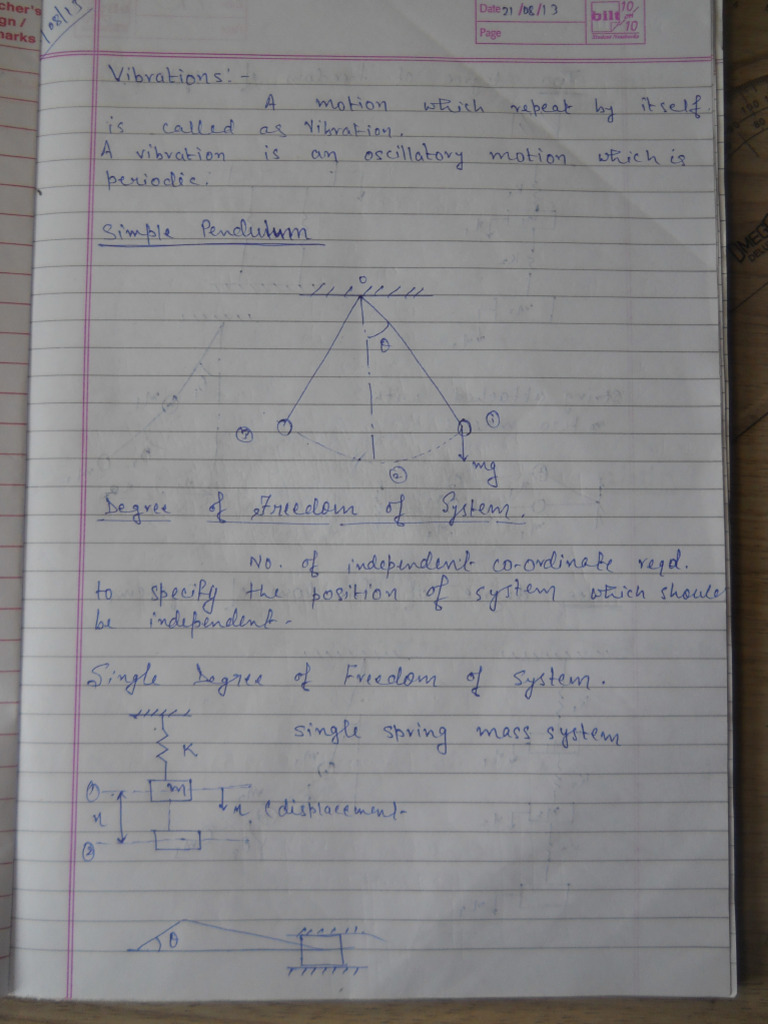 cher's
gn /
marks
/08/13
Date 21/08/13
Page
bilt
10/10
Vibrations:-
A motion which repeat by itself
is called as Vibration.
A vibration is an oscillatory motion which is
periodic.
Simple Pendulum
o
θ
③ ①
②
mg
Degree of Freedom of System.
No. of independent co-ordinate reqd.
to specify the position of system which should
be independent.
Single Degree of Freedom of System.
single spring mass system
K
① m
x x (displacement
②
θ